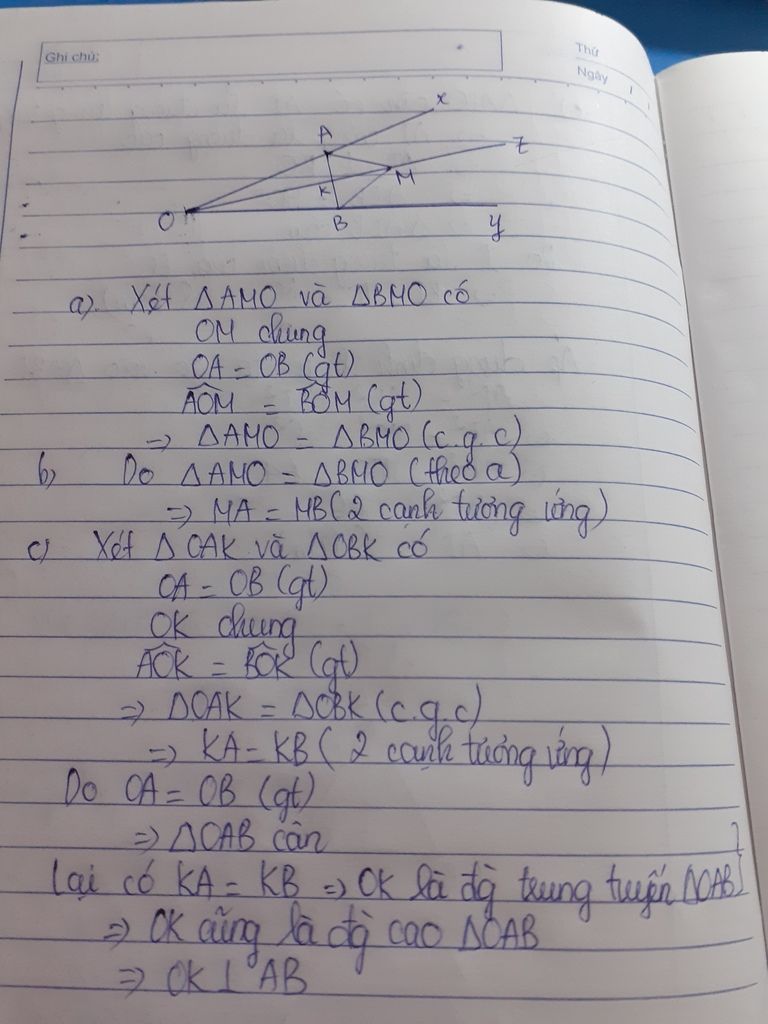 Ghi chú:
Thứ
Ngày / /
x
A
z
K
M
O
B
y
a). Xét ΔAMO và ΔBMO có
OM chung
OA = OB (gt)
AÔM = BÔM (gt)
=> ΔAMO = ΔBMO (c.g.c)
b) Do ΔAMO = ΔBMO (theo a)
=> MA = MB (2 cạnh tương ứng)
c) Xét ΔOAK và ΔOBK có
OA = OB (gt)
OK chung
AÔK = BÔK (gt)
=> ΔOAK = ΔOBK (c.g.c)
=> KA = KB (2 cạnh tương ứng)
Do OA = OB (gt)
=> ΔOAB cân
Lại có KA = KB => OK là đg trung tuyến ΔOAB
=> OK cũng là đg cao ΔOAB
=> OK ⊥ AB